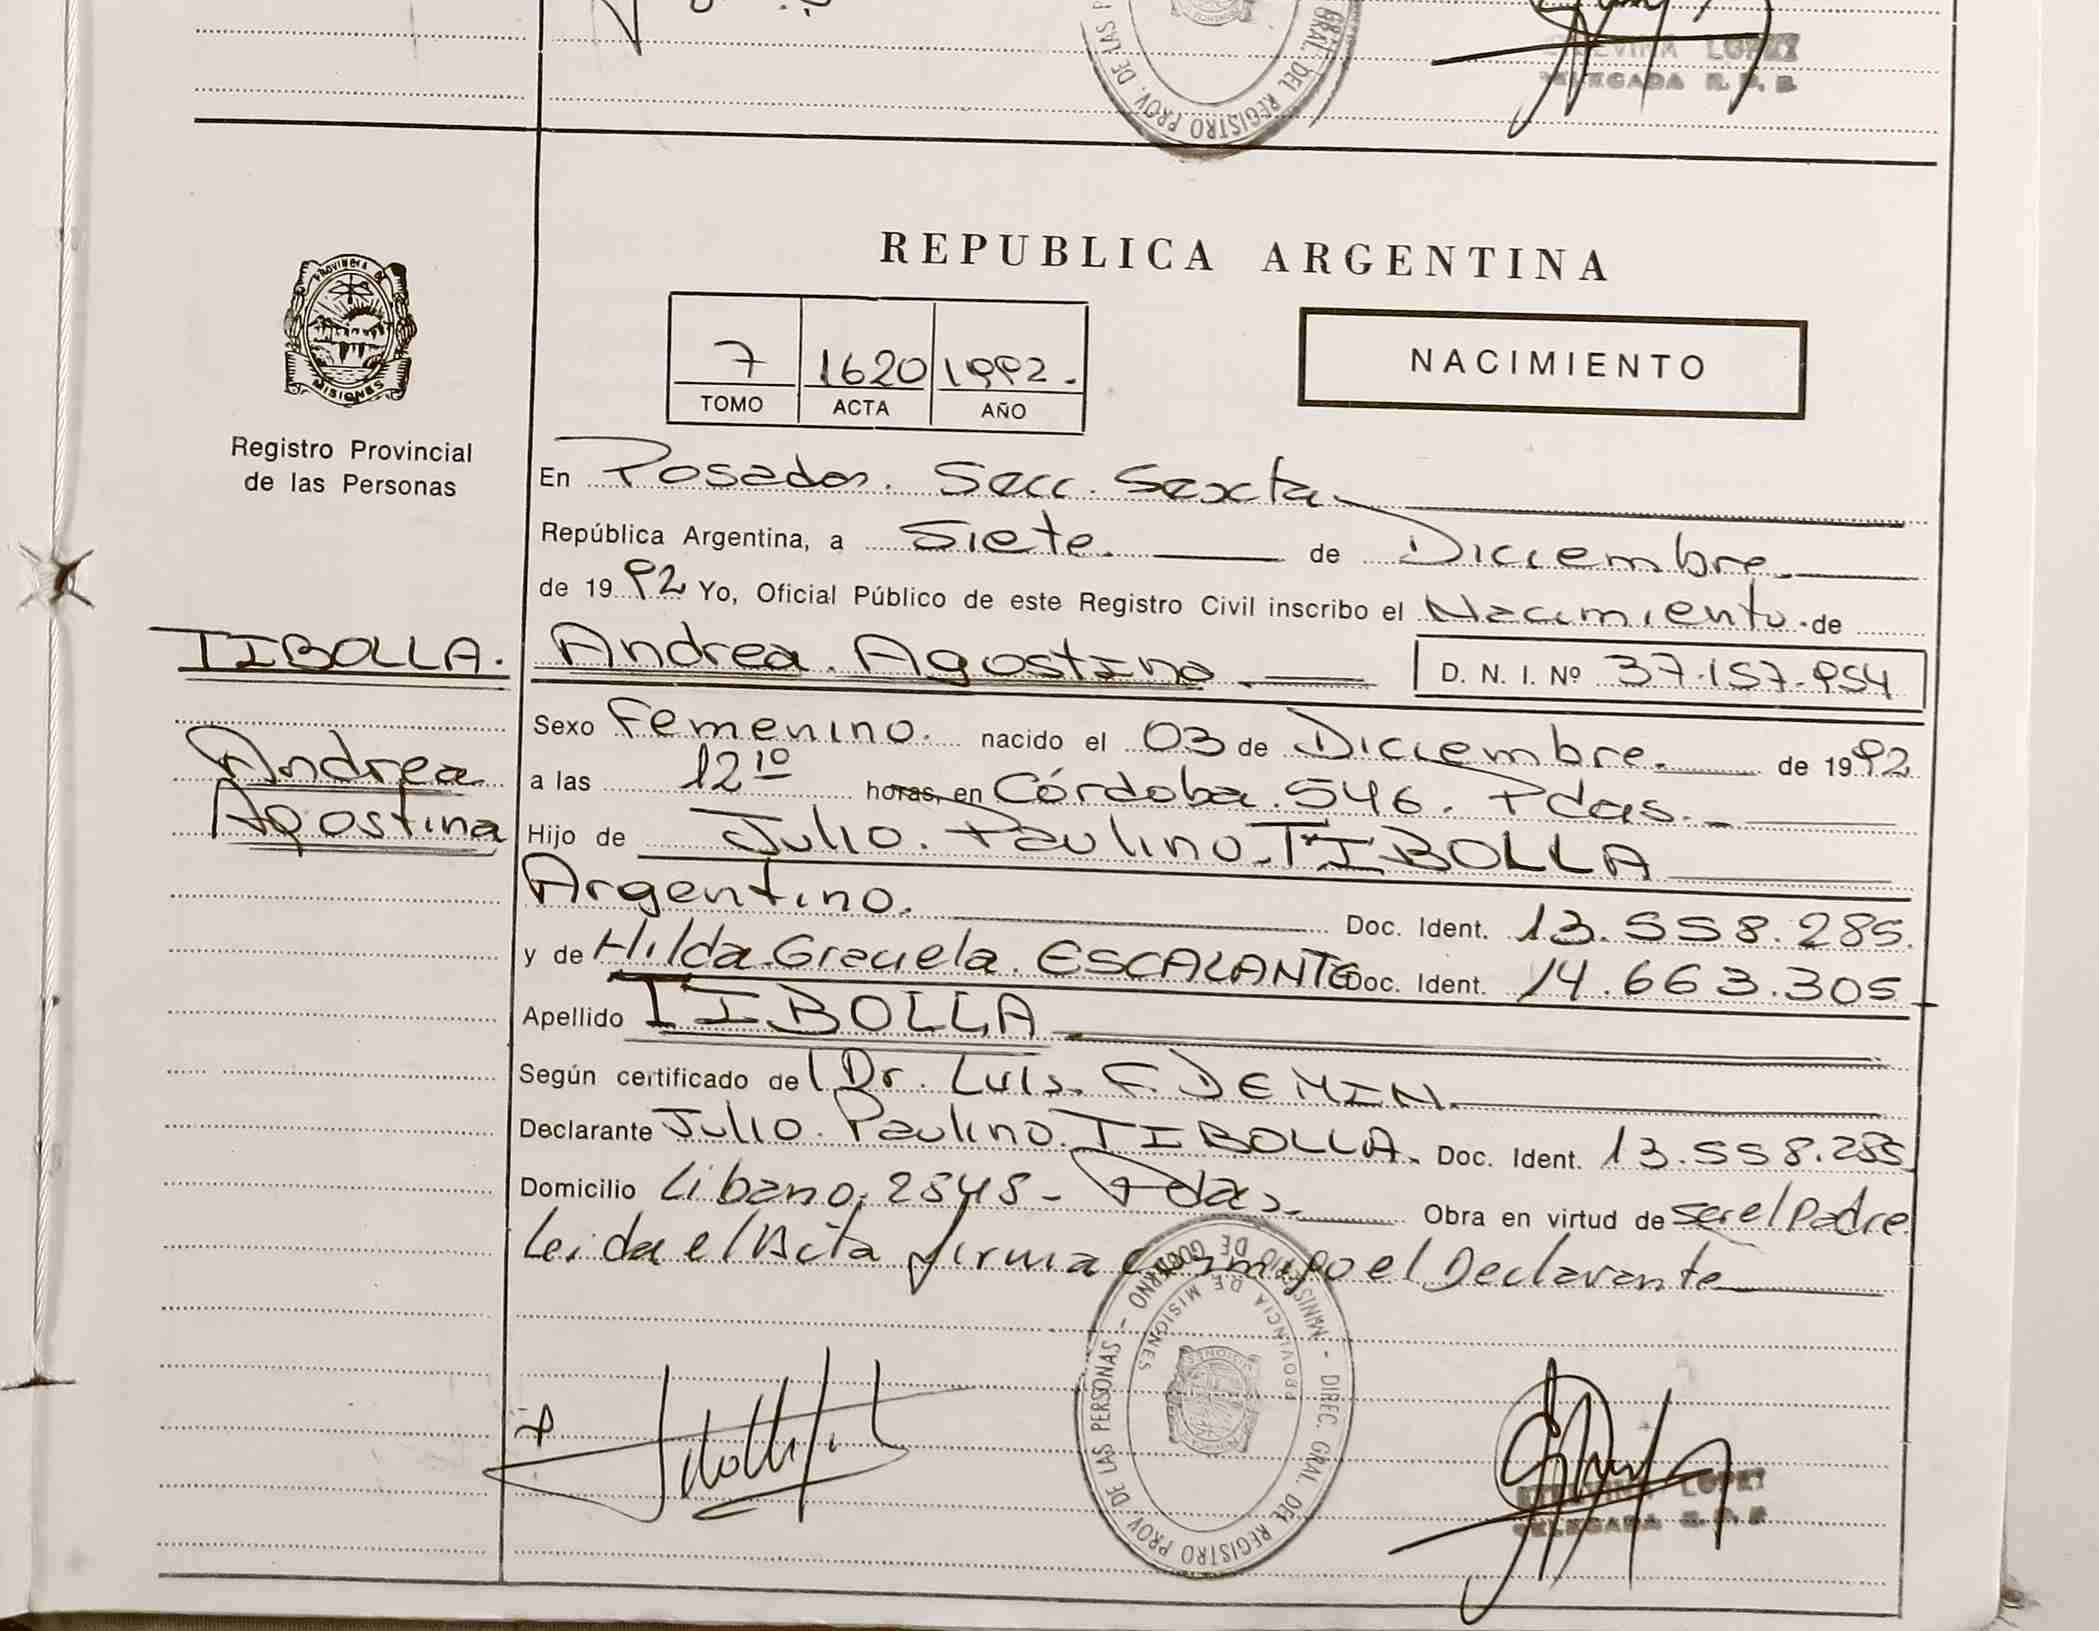 LOPEZ
DELEGADA R. P. P.
GRAL. DEL REGISTRO PROV. DE LAS
REPUBLICA ARGENTINA
PROVINCIA DE MISIONES
7 1620 1992.
TOMO ACTA AÑO
NACIMIENTO
Registro Provincial
de las Personas
En Posadas. Secc. Sexta
República Argentina, a Siete. de Diciembre.
de 1992 Yo, Oficial Público de este Registro Civil inscribo el Nacimiento de
TIBOLLA. Andrea. Agostina D. N. I. Nº 37.157.954
Sexo Femenino. nacido el 03 de Diciembre. de 1992
Andrea
a las 12 10 horas, en Córdoba. 546. Pdas.
Agostina
Hijo de Julio. Paulino. TIBOLLA
Argentino. Doc. Ident. 13.558.285.
y de Hilda Graciela. ESCALANTE Doc. Ident. 14.663.305
Apellido TIBOLLA
Según certificado del Dr. Luis. F. DEMIN.
Declarante Julio. Paulino. TIBOLLA. Doc. Ident. 13.558.285
Domicilio Libano. 2848 - Pdas. Obra en virtud de ser el Padre
Leida el Acta firma conmigo el Declarante
MINISTERIO DE GOBIERNO - DIREC. GRAL. DEL REGISTRO PROV. DE LAS PERSONAS -
PROVINCIA DE MISIONES
LOPEZ
DELEGADA